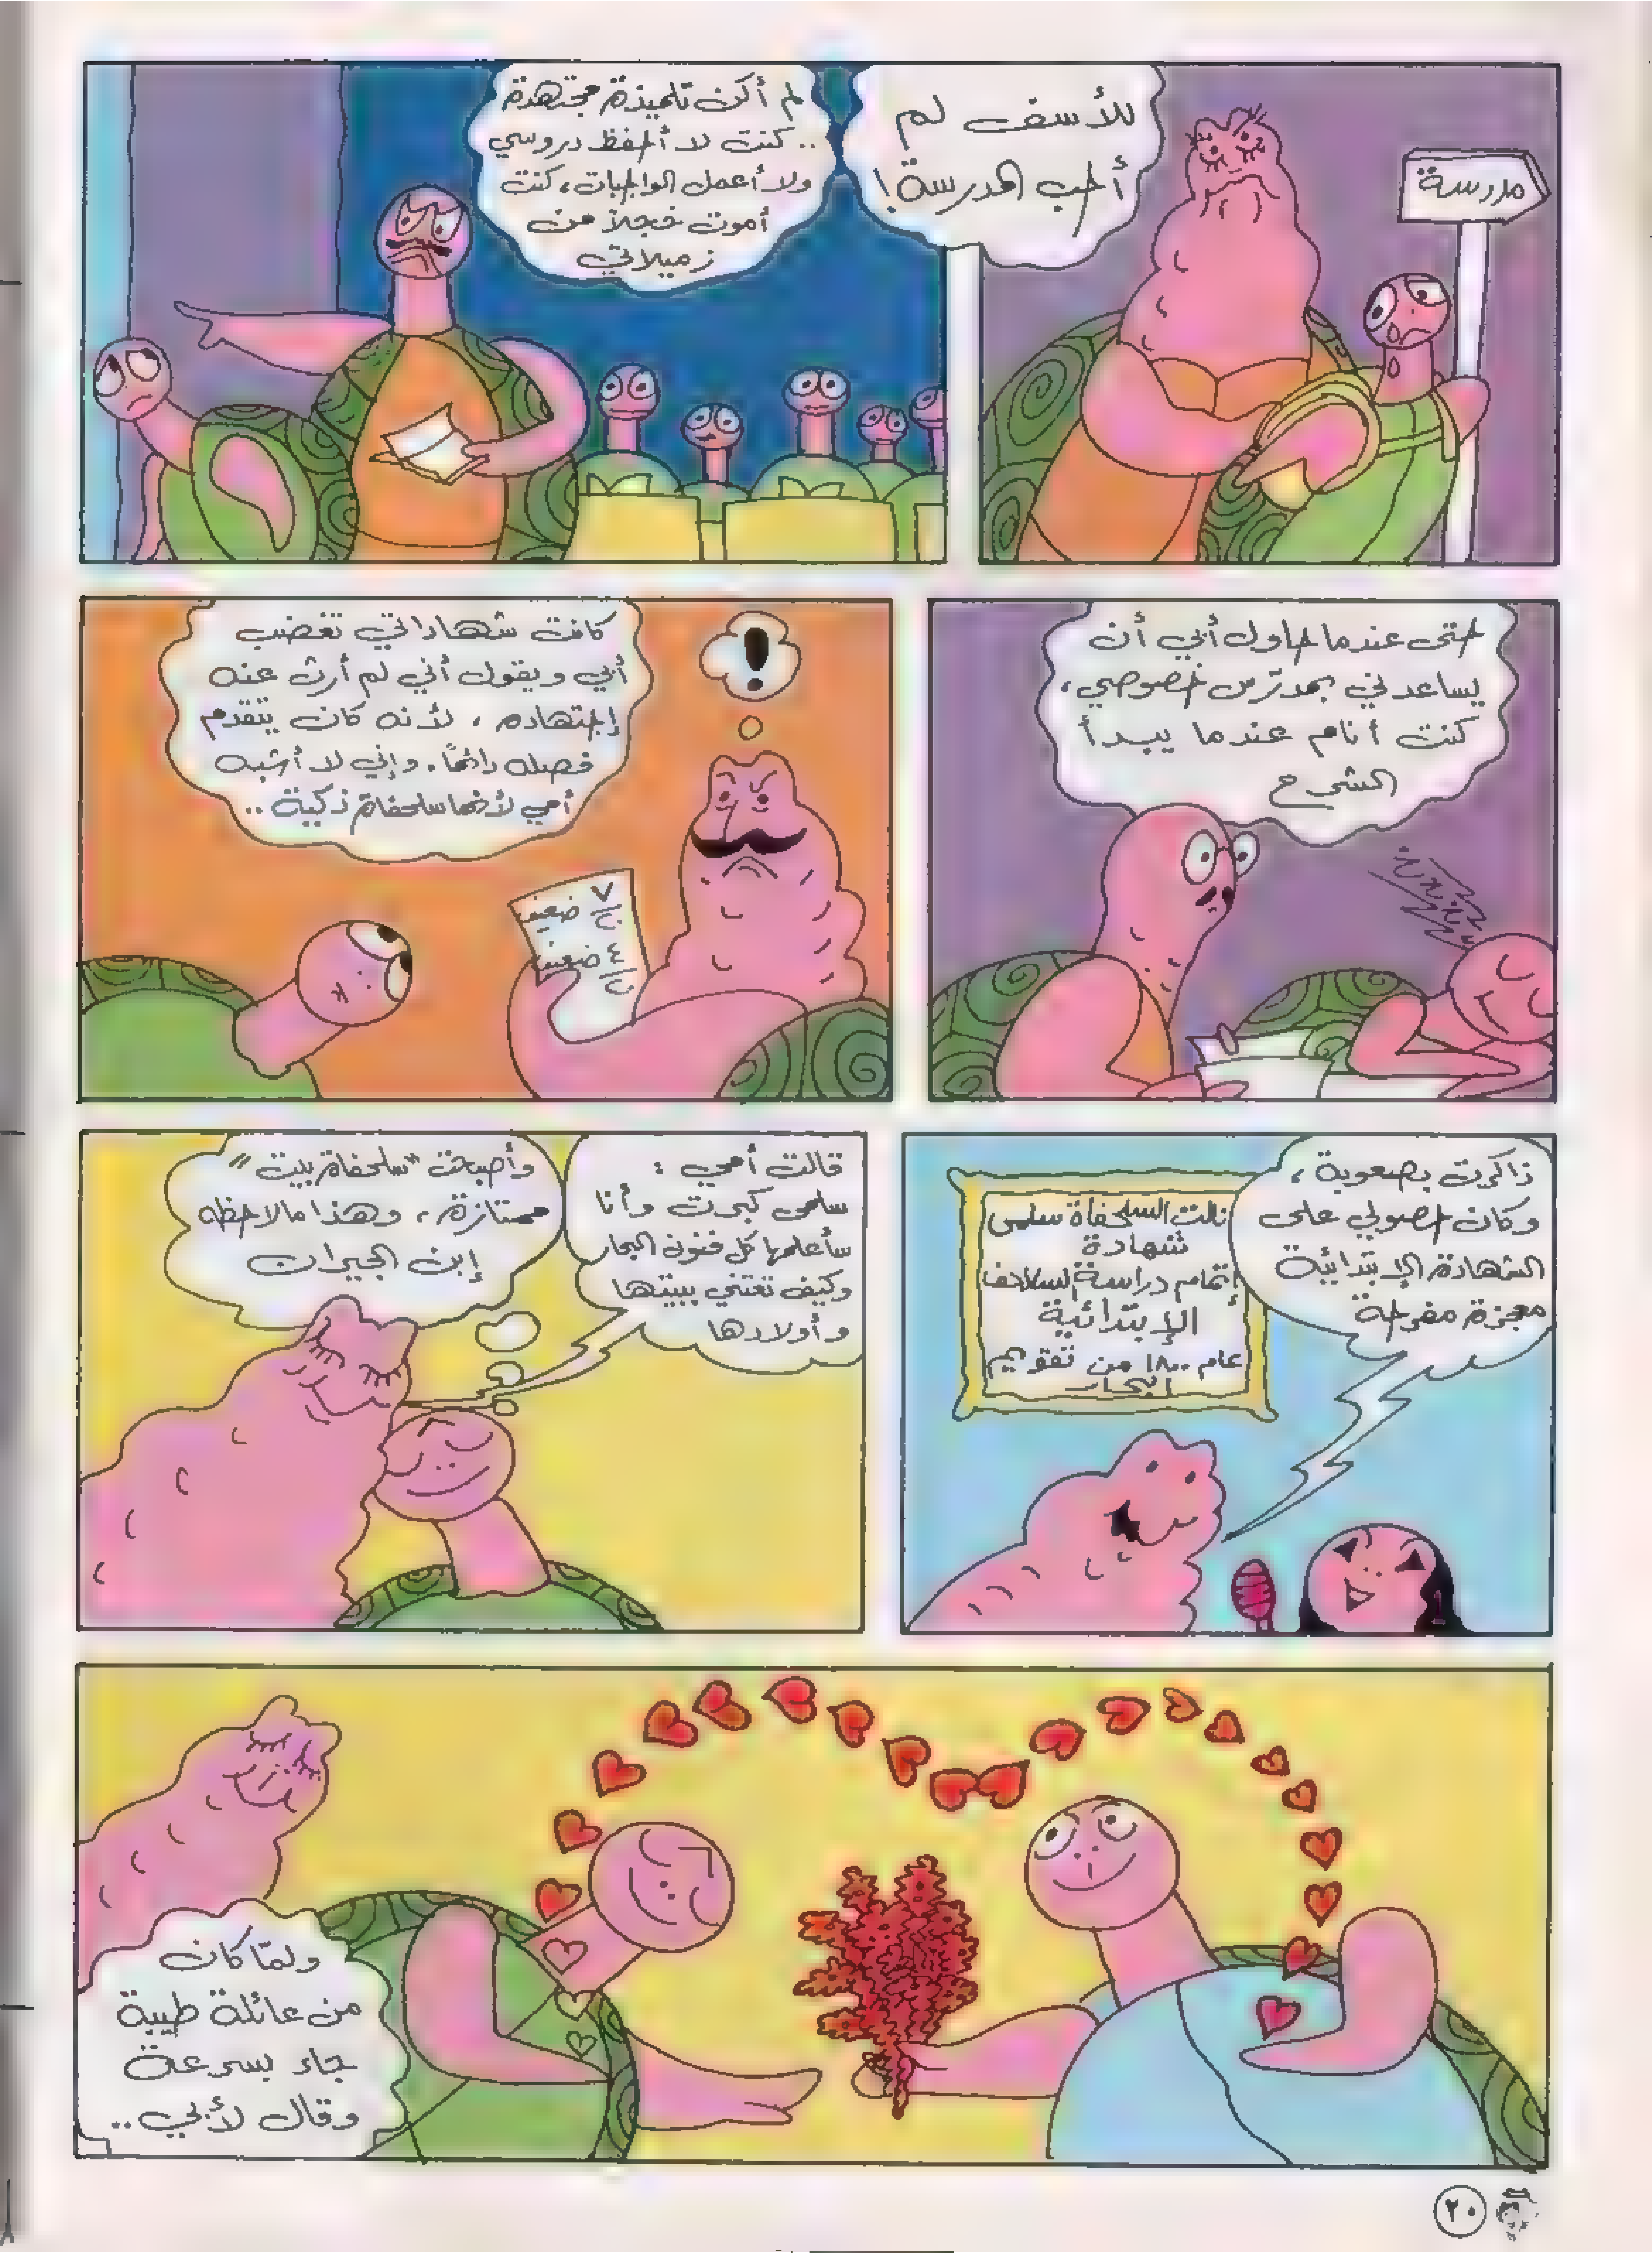 للأسف لم
أحب المدرسة!
مدرسة
لم أكن تلميذة مجتهدة
..كنت لا أحفظ دروسي
ولا أعمل الواجبات، كنت
أموت خجلاً من
زميلاتي
حتى عندما حاول أبي أن
يساعدني بمدرّس خصوصي،
كنت أنام عندما يبدأ
الشرح
كانت شهاداتي تغضب
أبي ويقول أني لم أرث عنه
إجتهاده، لأنه كان يتقدم
فصله دائماً. وإني لا أشبه
أمي لأنها سلحفاة ذكية..
!
٧/٢٠ ضعيف
٤/٢٠ ضعيف
ذاكرت بصعوبة،
وكان حصولي على
الشهادة الإبتدائية
معجزة مفرحة
نالت السلحفاة سلمى
شهادة
إتمام دراسة السلاحف
الإبتدائية
عام ١٨٠٠ من تقويم
البحار
قالت أمي :
سلمى كبرت وأنا
سأعلمها كل فنون البحار
وكيف تعتني ببيتها
وأولادها
وأصبحت "سلحفاة بيت"
ممتازة، وهذا ما لاحظه
إبن الجيران
ولمّا كان
من عائلة طيبة
جاء بسرعة
وقال لأبي..
٢٠